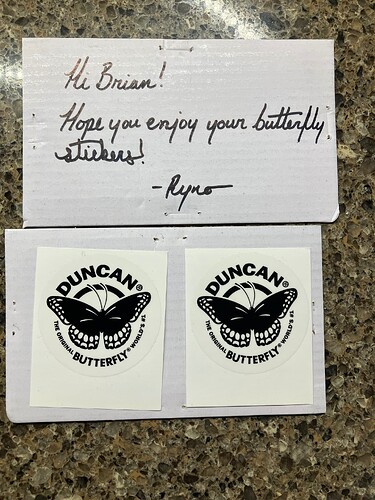 Hi Brian!
Hope you enjoy your butterfly
stickers!
-Ryno
DUNCAN®
THE ORIGINAL BUTTERFLY® WORLD'S #1
DUNCAN®
THE ORIGINAL BUTTERFLY® WORLD'S #1